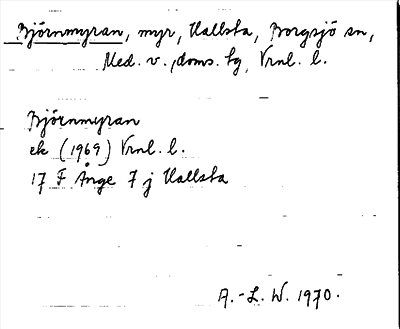 Björnmyran, myr, Hallsta, Borgsjö sn,
Med. v., doms. tg, Vrnl. l.
Björnmyran
ek (1969) Vrnl. l.
17 F Ånge 7 j Hallsta
A.-L. W. 1970.